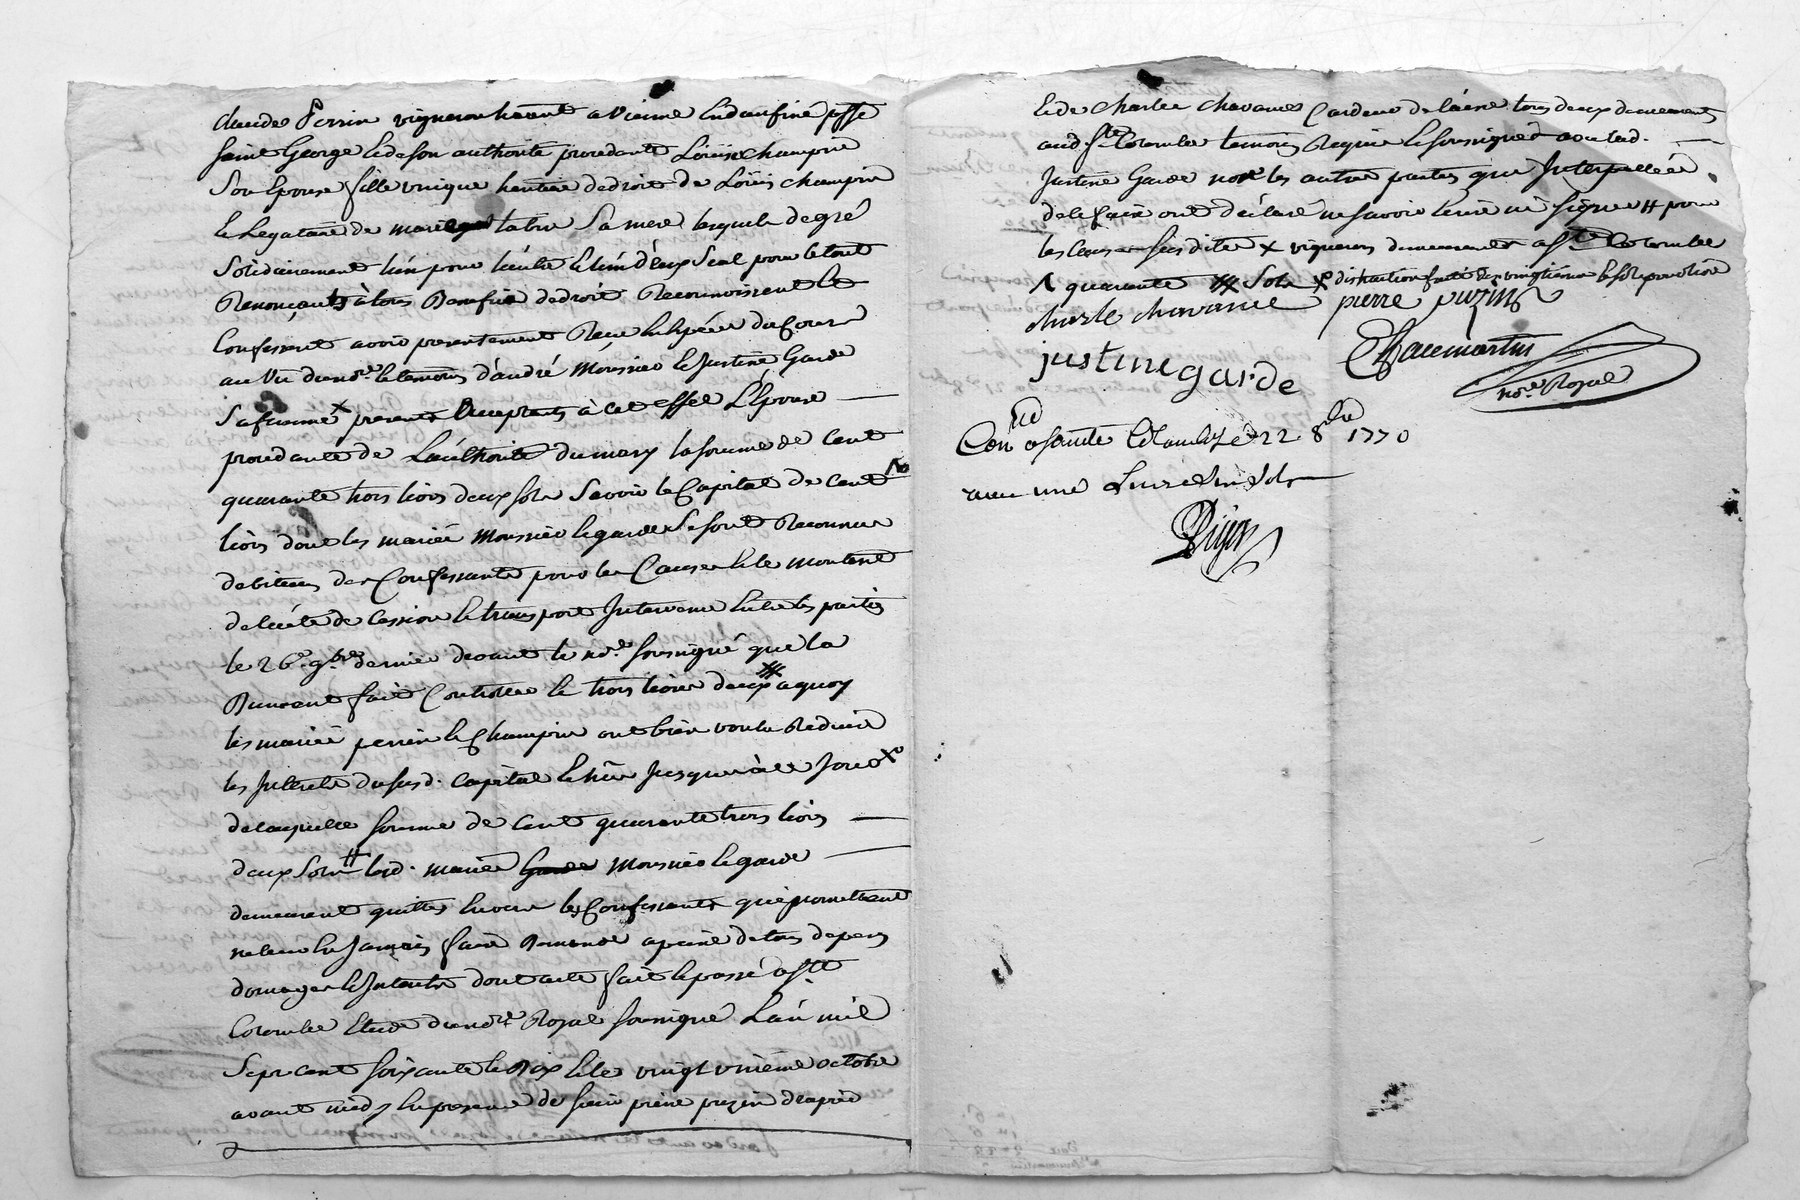 Claude Perrin vigneron hâant a vienne En daufiné psse
Saint George Et de son authorité procedante Loüise champin
Son Epouse fille unique heritiere de droit de Loüis champin
et Legataire de marie latre Sa mere lesquels de gré
Solidairement l'un pour l'autre et l'un d'eux Seul pour le tout
Renonçants à tous Benefice de droit Reconnoissent et
Confessent avoir presentement Reçu En Espéces du Cours
au vû du not.re et temoins d'andré Mousnier et Justine Garde
Sa femme x present Acceptants à cet effet L'Epouse
procedante de L'authorité du mary la somme de Cent
quarante trois livres deux sols Savoir le Capital de Cent
livres dont les mariés Mousnier et garde Se sont Reconnus
debiteurs des Confessants pour les Causes Et le montant
de l'acte de Cession et transport Intervenu Entre les parties
le 26.e 9.bre dernier devant le no.re soussigné que la
Dument fait Controller et trois livres deux a quoy
les mariés perrin et Champin ont bien voulu Reduire
les Interets du susd. Capital Echûs Jusques à ce Jour x
de laquelle somme de Cent quarante trois livres
deux sols # lesd. mariés Mousnier et garde
demeurent quittes Envers les Confessants qui promettent
ne leur En Jamais faire Demande a peine de tous depens
domages et Interets dont acte fait et passé a Ste
Colombe Etude du not.re Royal soussigné L'an mil
Sept cent soixante et Dix Et le vingt unieme octobre
avant midy En presence de Sieur pierre puzin drapier
Et de Charles Chavance Cardeur de laine tous deux demeurants
aud. Ste Colombe temoins Requis Et soussignés avec lad.
Justine Garde non les autres parties qui Interpellées
de le faire ont déclaré ne savoir Ecrire ni signer # pour
les Causes susdites x vignerons demeurants a Ste Colombe
quarante Sols x distraction faite des vingtiemes Et sols pour livre
charle chavance pierre puzin
justine garde Chaumartin
not.re Royal
Con.lé a Sainte Colombe Le 22 8bre 1770
Reçu une Livre Six Sols